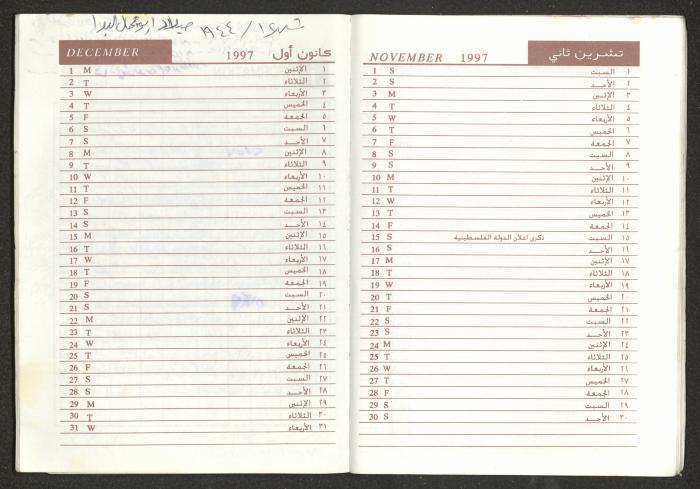 NOVEMBER 1997 تشرين ثاني
1 S السبت ١
2 S الأحد ٢
3 M الإثنين ٣
4 T الثلاثاء ٤
5 W الأربعاء ٥
6 T الخميس ٦
7 F الجمعة ٧
8 S السبت ٨
9 S الأحد ٩
10 M الإثنين ١٠
11 T الثلاثاء ١١
12 W الأربعاء ١٢
13 T الخميس ١٣
14 F الجمعة ١٤
15 S ذكرى اعلان الدولة الفلسطينية السبت ١٥
16 S الأحد ١٦
17 M الإثنين ١٧
18 T الثلاثاء ١٨
19 W الأربعاء ١٩
20 T الخميس ٢٠
21 F الجمعة ٢١
22 S السبت ٢٢
23 S الأحد ٢٣
24 M الإثنين ٢٤
25 T الثلاثاء ٢٥
26 W الأربعاء ٢٦
27 T الخميس ٢٧
28 F الجمعة ٢٨
29 S السبت ٢٩
30 S الأحد ٣٠
١٩٤٤ ميلاد ابو
DECEMBER 1997 كانون أول
1 M الإثنين ١
2 T الثلاثاء ٢
3 W الأربعاء ٣
4 T الخميس ٤
5 F الجمعة ٥
6 S السبت ٦
7 S الأحد ٧
8 M الإثنين ٨
9 T الثلاثاء ٩
10 W الأربعاء ١٠
11 T الخميس ١١
12 F الجمعة ١٢
13 S السبت ١٣
14 S الأحد ١٤
15 M الإثنين ١٥
16 T الثلاثاء ١٦
17 W الأربعاء ١٧
18 T الخميس ١٨
19 F الجمعة ١٩
20 S السبت ٢٠
21 S الأحد ٢١
22 M الإثنين ٢٢
23 T الثلاثاء ٢٣
24 W الأربعاء ٢٤
25 T الخميس ٢٥
26 F الجمعة ٢٦
27 S السبت ٢٧
28 S الأحد ٢٨
29 M الإثنين ٢٩
30 T الثلاثاء ٣٠
31 W الأربعاء ٣١